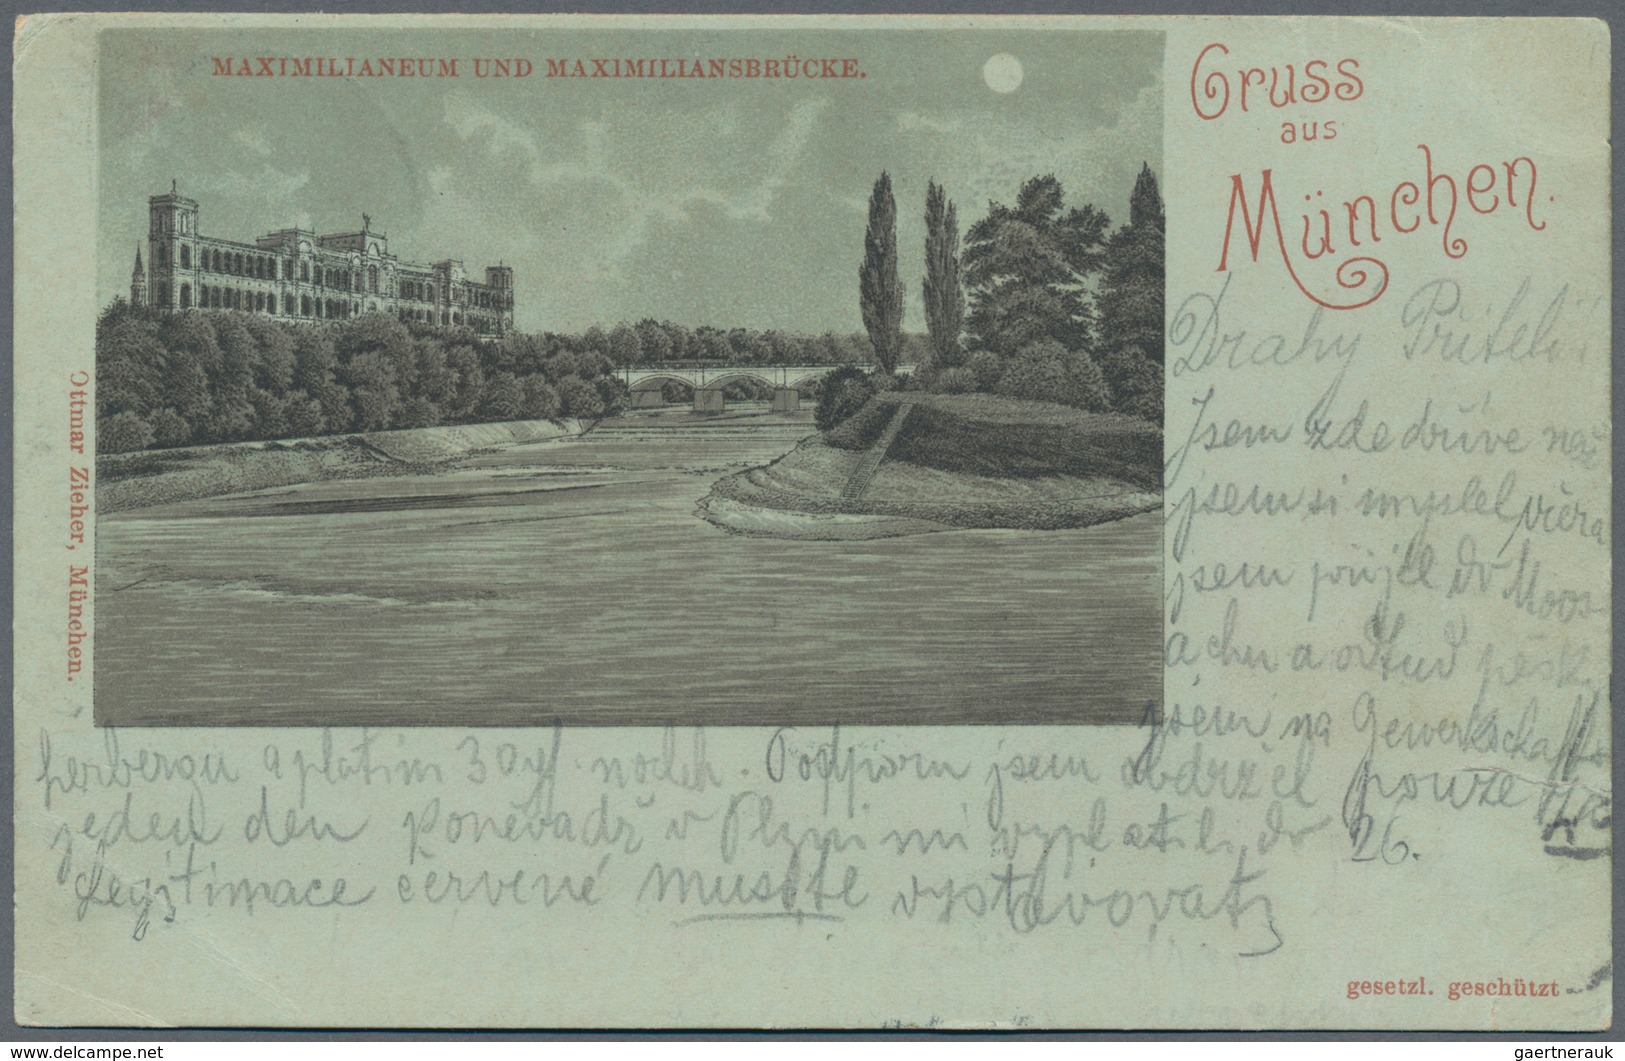 MAXIMILIANEUM UND MAXIMILIANSBRÜCKE.
Gruss
aus
München.
Ottmar Zieher, München.
Drahy Příteli!
Jsem zde dříve než
jsem si myslel včera
jsem přijel do Moos-
achu a odtud pěšk.
jsem na Gewerkschafts
herbergu a platím 30 noclh. Podporu jsem obdržel pouze
jeden den poněvadž v Plzni mi vyplatili do 26.
Legitimace červené musíte vystavovati
gesetzl. geschützt
gaertnerauk